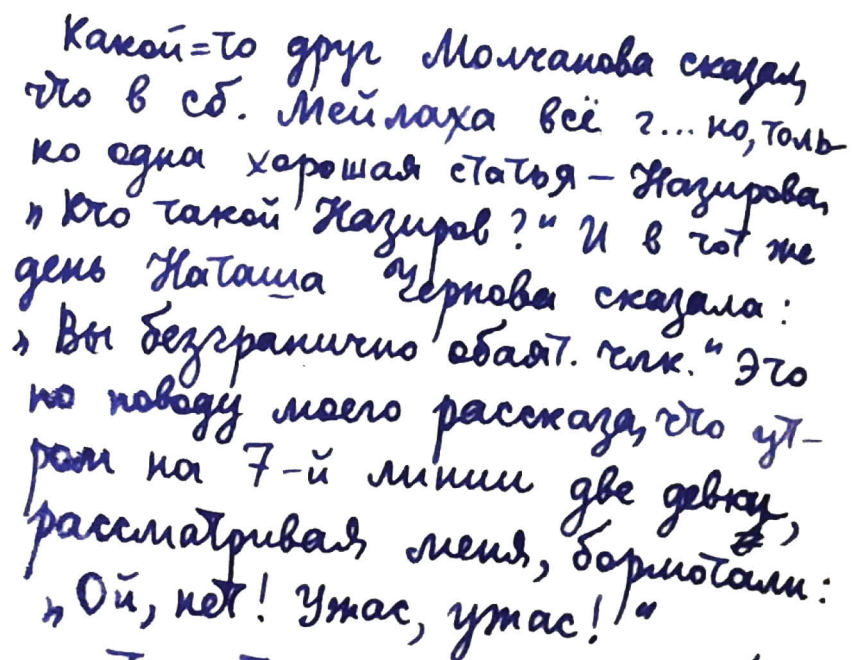 Какой=то друг Молчанова сказал,
что в сб. Мейлаха всё г... но, толь-
ко одна хорошая статья – Назирова,
„Кто такой Назиров?“ И в тот же
день Наташа Чернова сказала:
„Вы безгранично обаят. члк.“ Это
по поводу моего рассказа, что ут-
ром на 7-й линии две девки,
рассматривая меня, бормотали:
„Ой, нет! Ужас, ужас!“